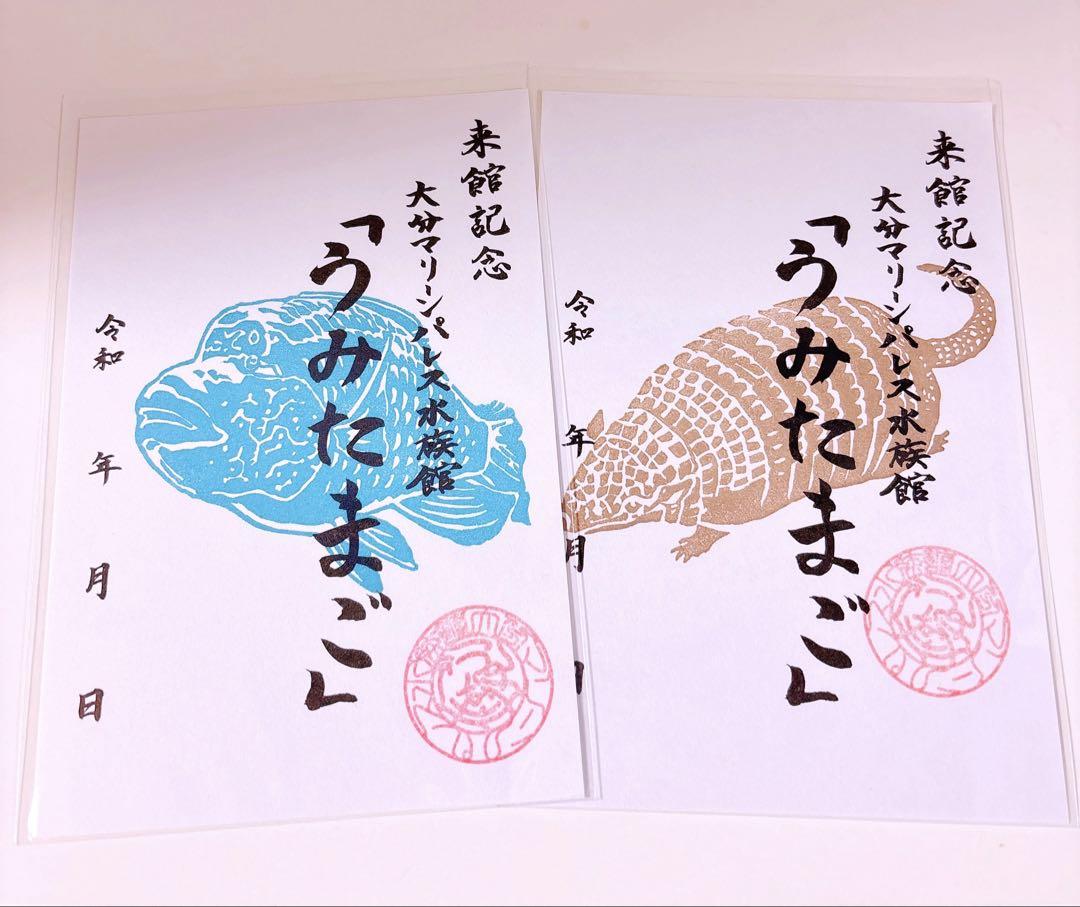 来館記念
大分マリーンパレス水族館
「うみたまご」
令和 年 月 日
来館記念
大分マリーンパレス水族館
「うみたまご」
令和 年 月 日